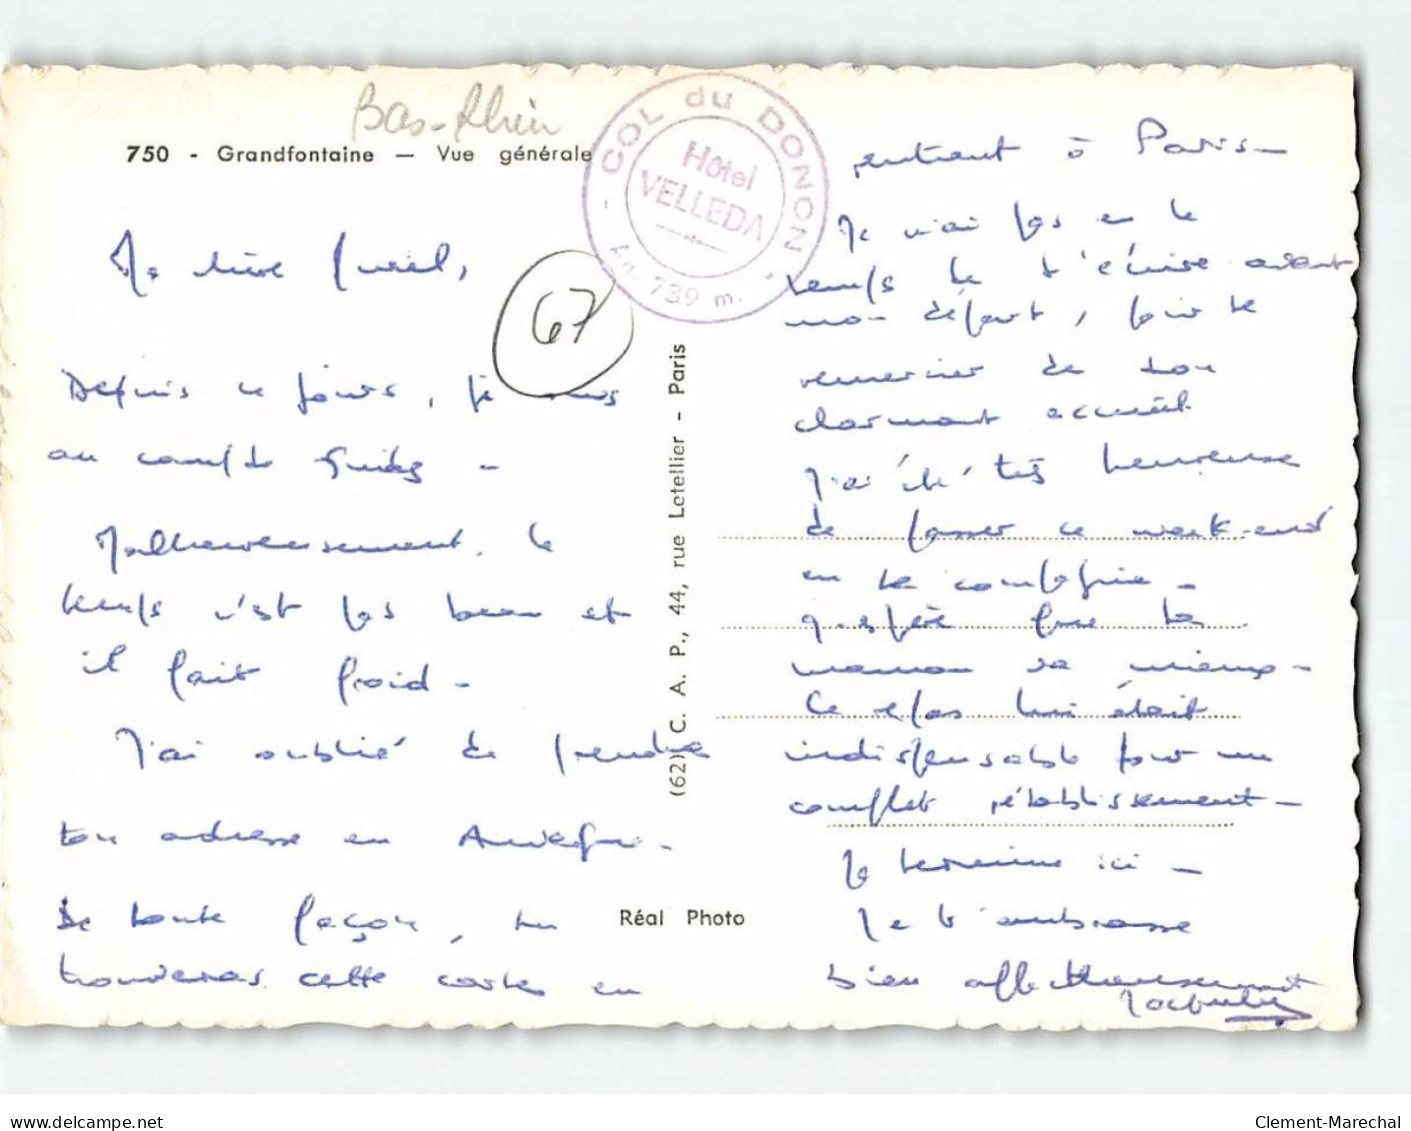 Bas-Rhin
750 - Grandfontaine — Vue générale
COL du DONON
Hôtel
VELLEDA
Alt. 739 m.
67
Ma chère
Depuis ce jours, je suis
au camp de Guides -
Malheureusement, le
temps n'est pas beau et
il fait froid -
J'ai oublié de prendre
ton adresse en Auvergne.
De toute façon, tu
trouveras cette carte en
(62) C. A. P., 44, rue Letellier - Paris
Réal Photo
rentrant à Paris -
Je n'ai pas eu le
temps de t'écrire avant
mon départ, pour te
remercier de ton
charmant accueil
J'ai été très heureuse
de passer ce week-end
en ta compagnie -
J'espère que ta
maman va mieux -
Ce repos lui était
indispensable pour un
complet rétablissement -
Je termine ici -
Je t'embrasse
bien affectueusement
delcampe.net
Clement-Marechal